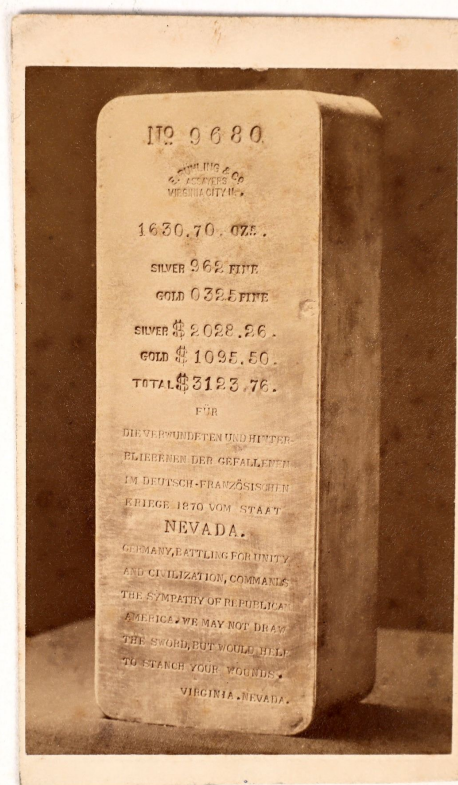 No 9680
& Co
ASSAYERS
VIRGINIA CITY N.
1630.70. OZS.
SILVER 962 FINE
GOLD 0325 FINE
SILVER $ 2028.26.
GOLD $ 1095.50.
TOTAL $ 3123.76.
FÜR
DIE VERWUNDETEN UND HINTER-
BLIEBENEN DER GEFALLENEN
IM DEUTSCH-FRANZÖSISCHEN
KRIEGE 1870 VOM STAAT
NEVADA.
GERMANY, BATTLING FOR UNITY
AND CIVILIZATION, COMMANDS
THE SYMPATHY OF REPUBLICAN
AMERICA. WE MAY NOT DRAW
THE SWORD, BUT WOULD HELP
TO STANCH YOUR WOUNDS.
VIRGINIA. NEVADA.